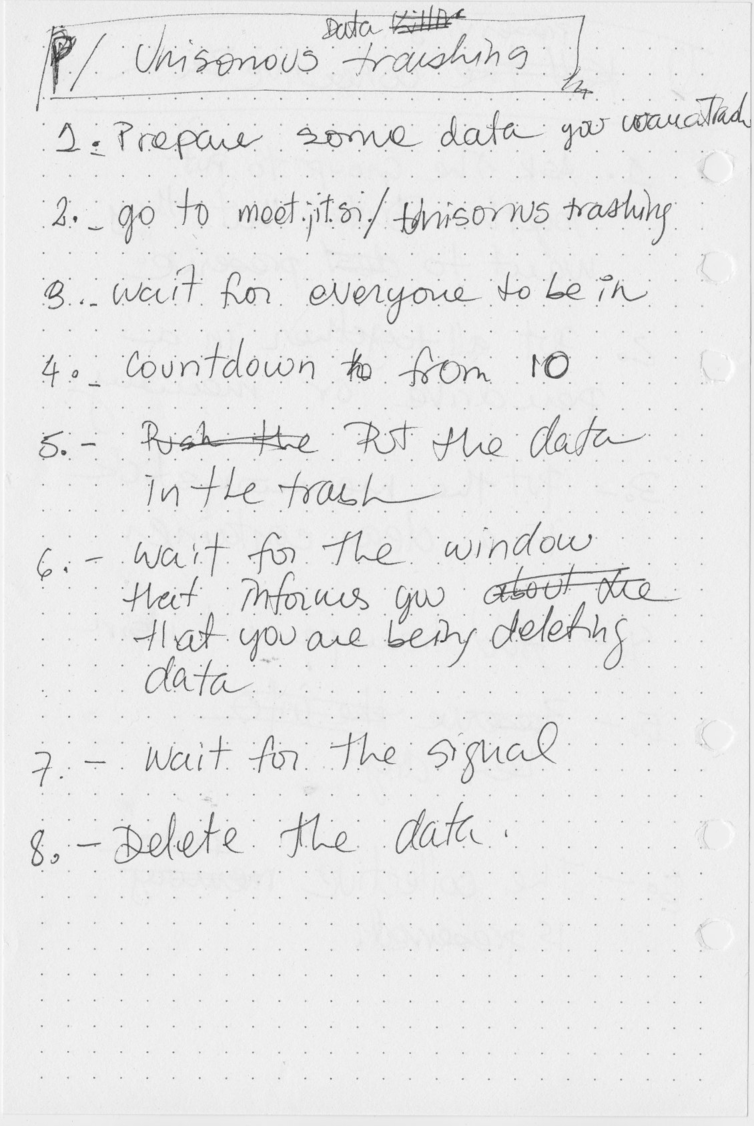 Data
P/ Unisonous trashing
1.- Prepare some data you wanna Trash
2.- go to meet.jit.si/Unisonus trashing
3.- wait for everyone to be in
4.- Countdown to from 10
5.- Push the Put the data
in the trash
6.- wait for the window
that informs you about the
that you are being deleting
data
7.- wait for the signal
8.- Delete the data.